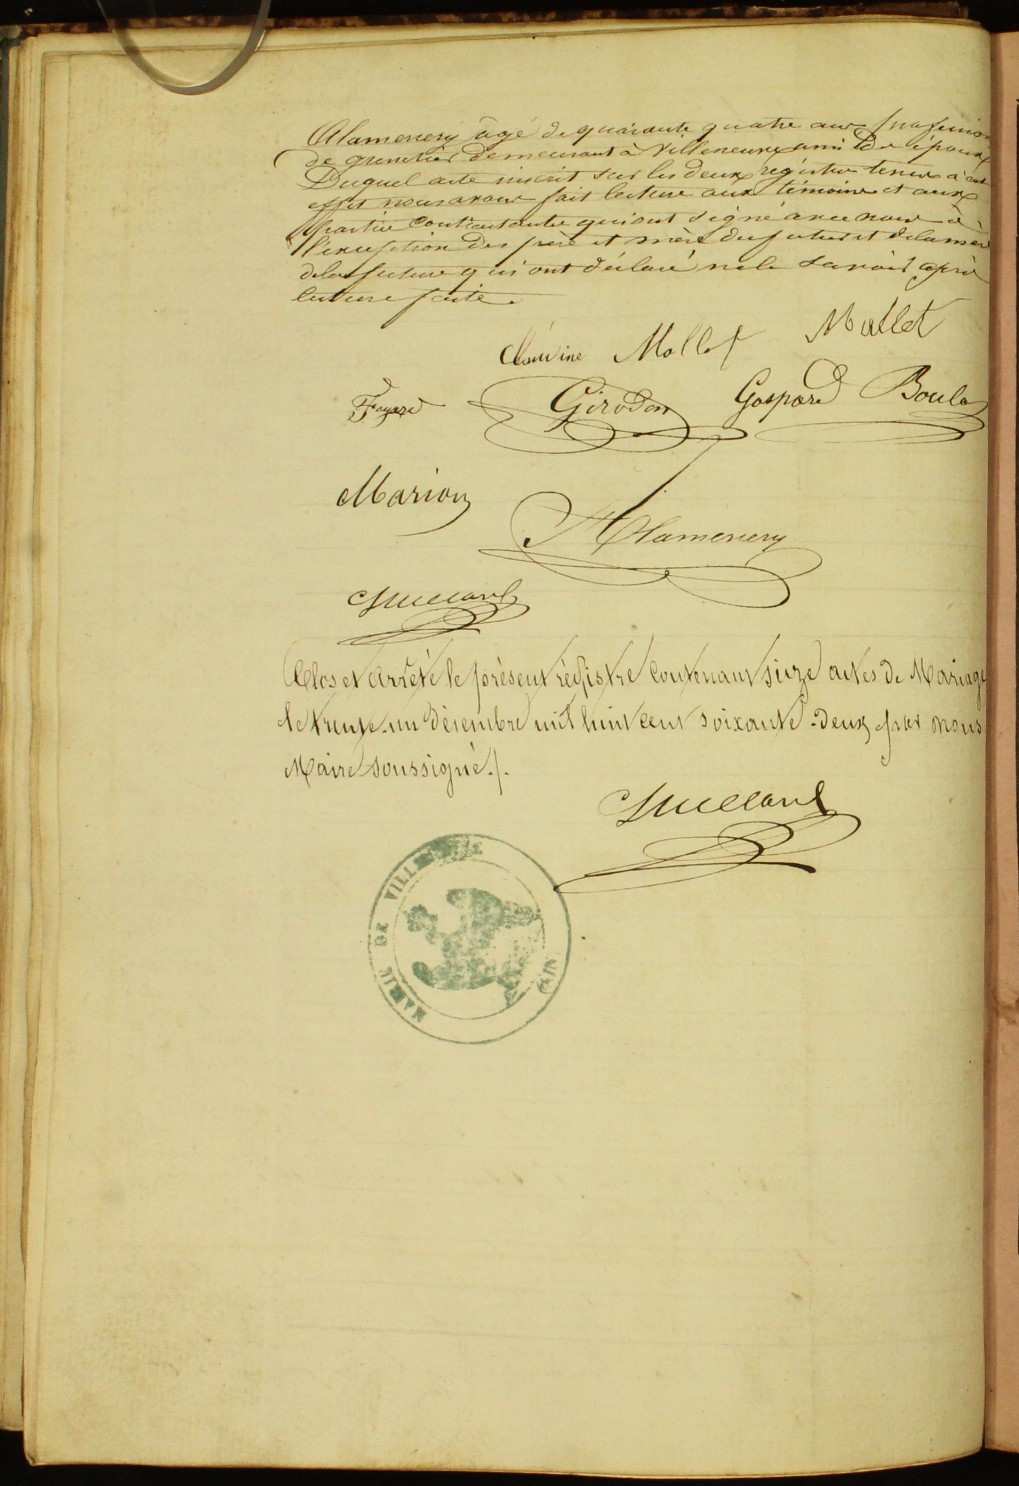 Alamercery âgé de quarante quatre ans profession
de grenetier demeurant à Villeneuve ami de l'époux
Duquel acte inscrit sur les deux registres tenus à cet
effet nous avons fait lecture aux témoins et aux
parties contractantes qui ont signé avec nous à
l'exception des père et mère du futur et de la mère
de la future qui ont déclaré ne le savoir après
lecture faite.
Mallet
Mollet
Fayard Girodon Gaspard Boula
Marion
Alamercery
Clos et arrêté le présent régistre contenant seize actes de Mariage
le trente-un Décembre mil huit cent soixante-deux par nous
Maire soussigné./.
MAIRIE DE VILLENEUVE
(AIN)